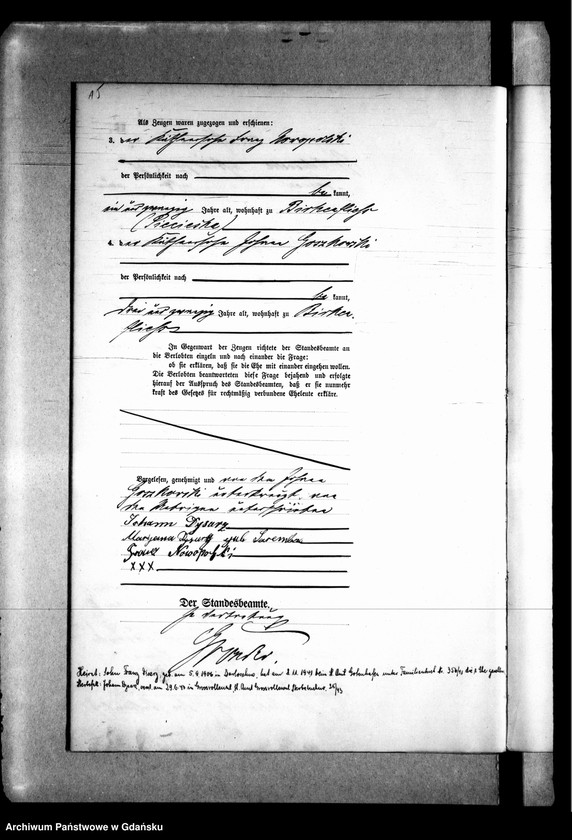 15
Als Zeugen waren zugezogen und erschienen:
3. der Käthnersohn Franz
der Persönlichkeit nach
bekannt,
ein und zwanzig Jahre alt, wohnhaft zu Birkenfließ
(Piecicka)
4. der Käthnersohn Johann Gorzkowski
der Persönlichkeit nach
bekannt,
drei und zwanzig Jahre alt, wohnhaft zu Birken-
fließ
In Gegenwart der Zeugen richtete der Standesbeamte an
die Verlobten einzeln und nach einander die Frage:
ob sie erklären, daß sie die Ehe mit einander eingehen wollen.
Die Verlobten beantworteten diese Frage bejahend und erfolgte
hierauf der Ausspruch des Standesbeamten, daß er sie nunmehr
kraft des Gesetzes für rechtmäßig verbundene Eheleute erkläre.
Vorgelesen, genehmigt und von dem Johann
Gorzkowski unterkreuzt, von
den Uebrigen unterschrieben
Johann Dysarz
Maryanna Dysarz geb Saremba
Franz Nowopolski
XXX
Der Standesbeamte.
In Vertretung
Heirat: Sohn Franz geb. am 5.9.1906 in hat am 2.11.1941 beim St. Amt Gotenhafen unter die Ehe
Johann am 29.6. in St. Amt
Archiwum Państwowe w Gdańsku